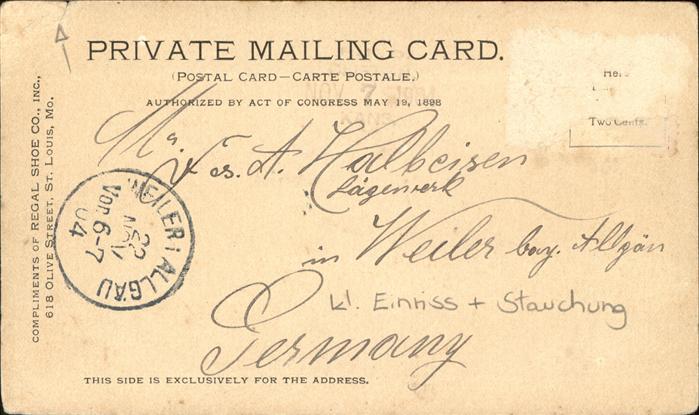 PRIVATE MAILING CARD.
(POSTAL CARD—CARTE POSTALE.)
AUTHORIZED BY ACT OF CONGRESS MAY 19, 1898
Here
Two Cents.
COMPLIMENTS OF REGAL SHOE CO., INC.,
618 OLIVE STREET, ST. LOUIS, MO.
Mr.
Jos. A. Halbeisen
Sägewerk
in Weiler bay. Allgäu
Germany
kl. Einriss + Stauchung
WEILER i. ALLGÄU
22
NOV
Vor 6-7
04
THIS SIDE IS EXCLUSIVELY FOR THE ADDRESS.